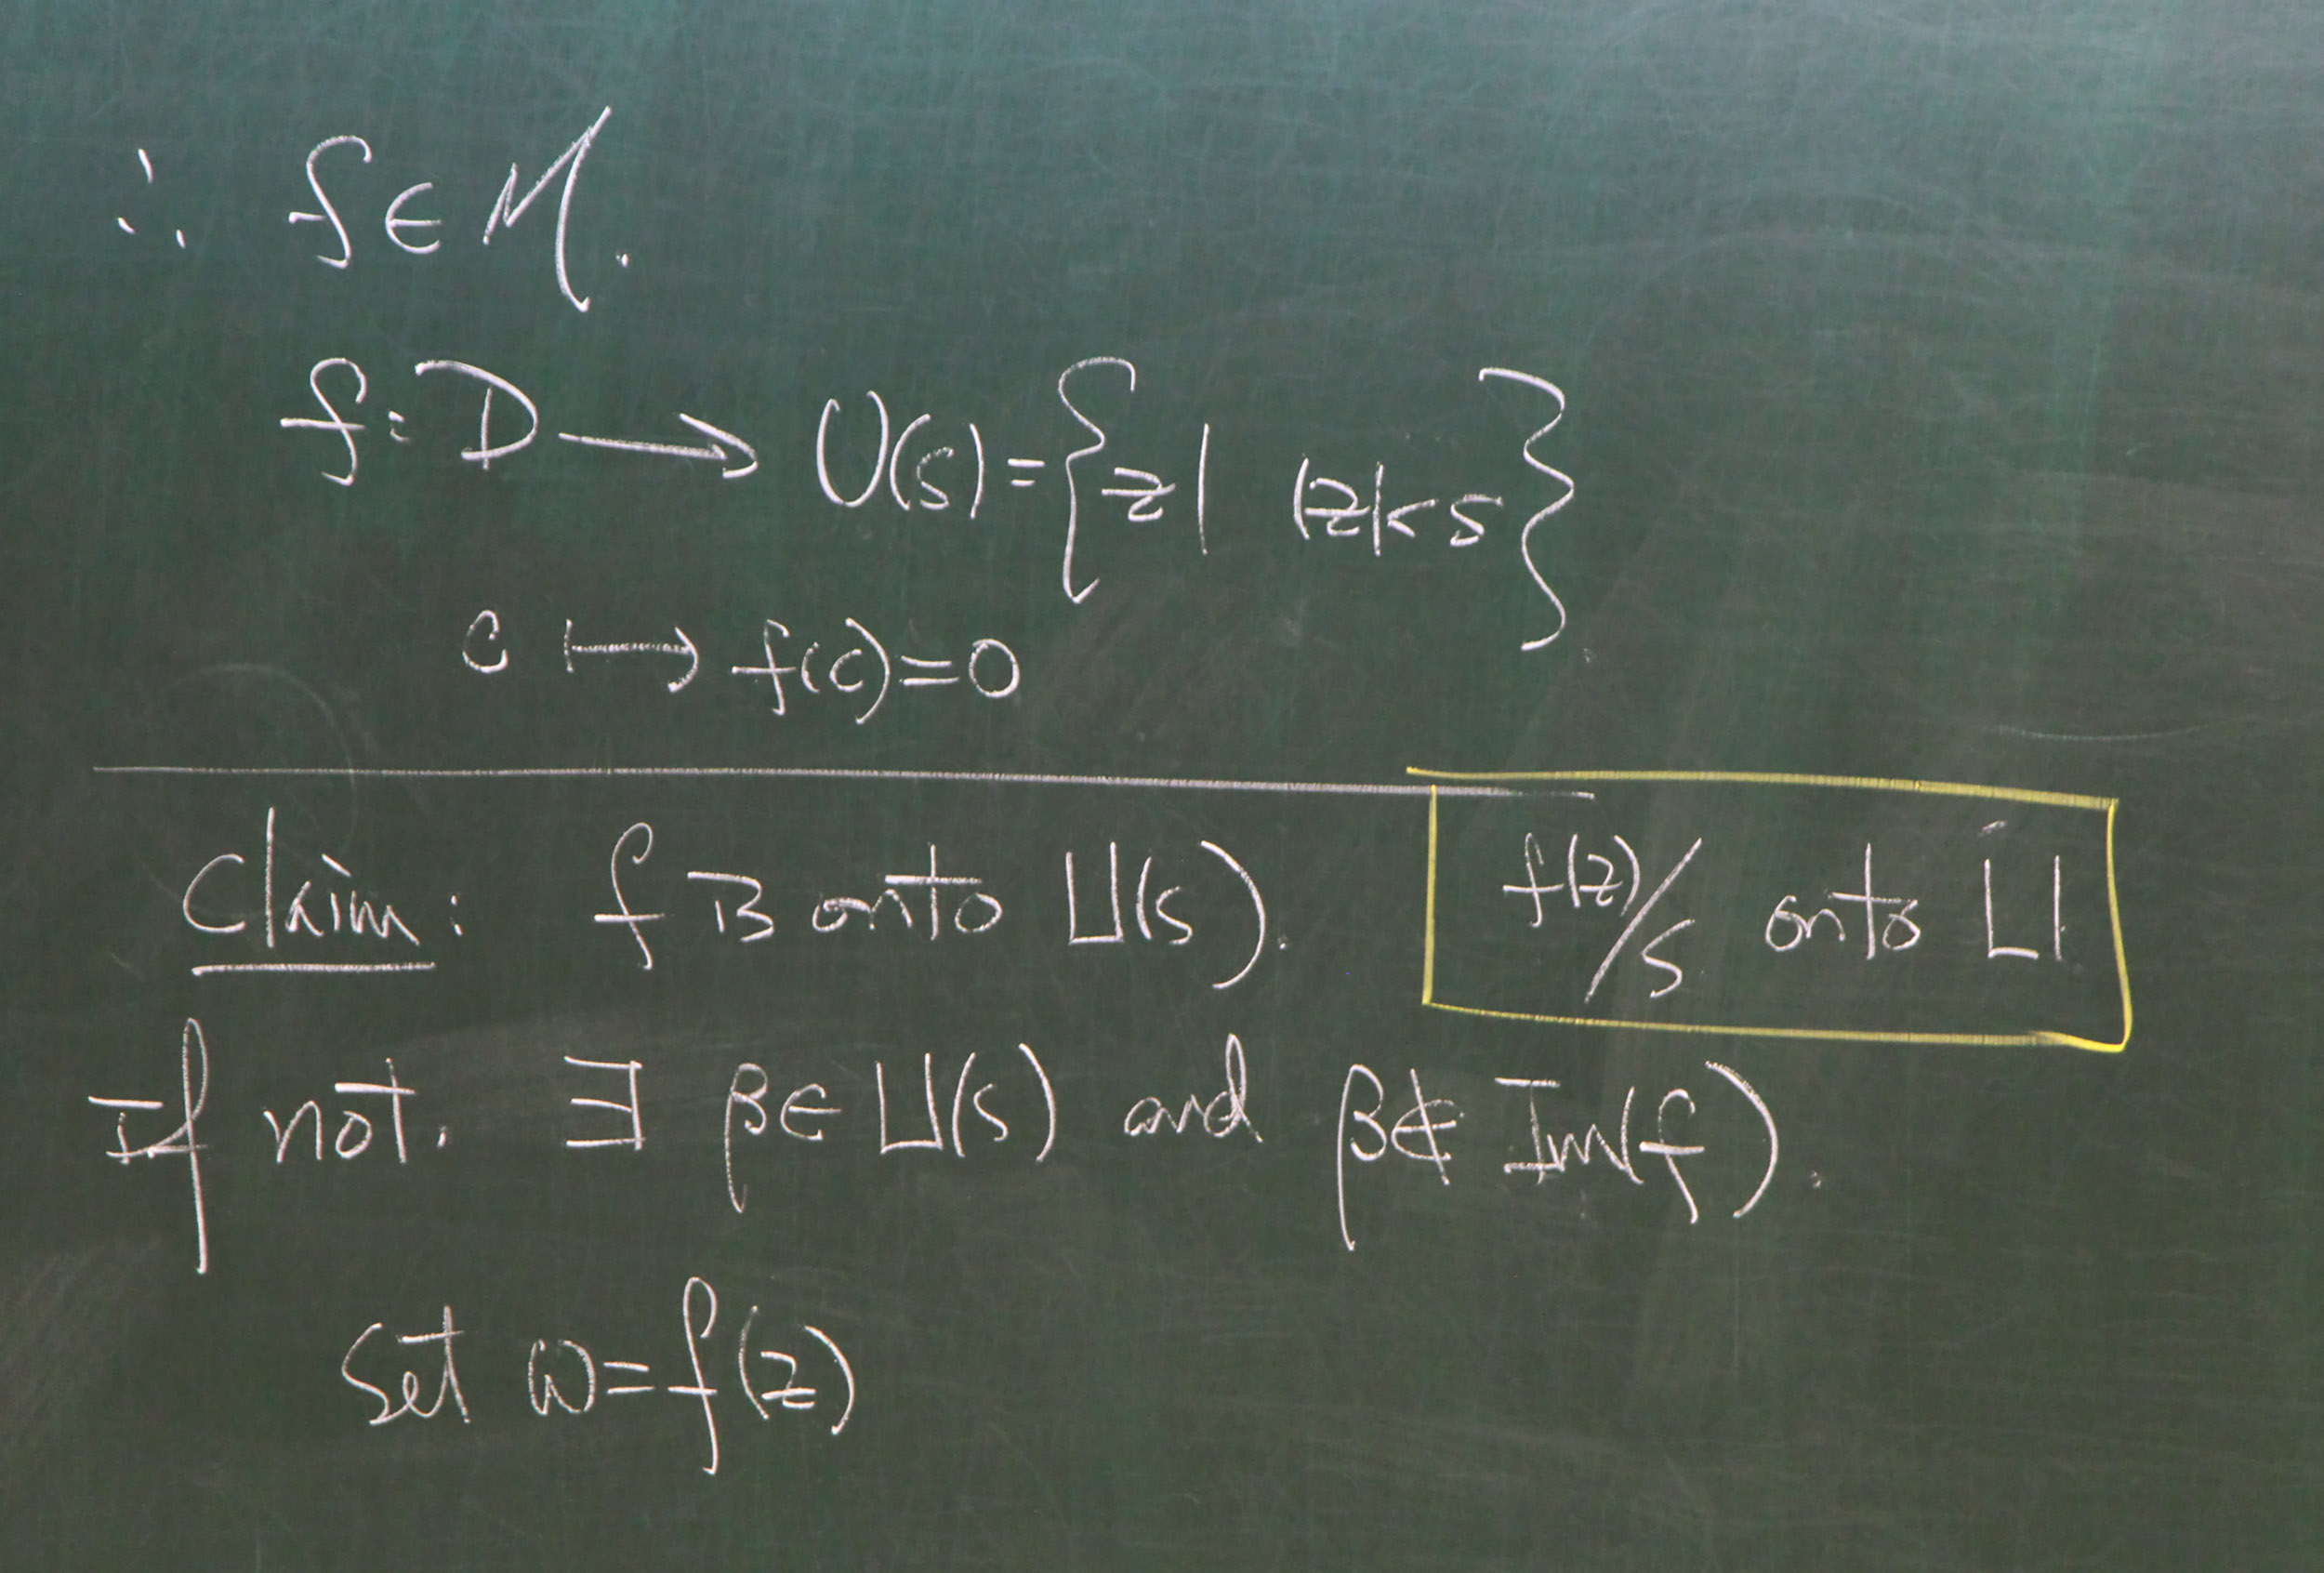 ∴ f ∈ M.
f: D ⟶ U(s) = { z | |z| < s }.
c ⟼ f(c) = 0
Claim: f is onto U(s).
f(z)/s onto U
If not. ∃ β ∈ U(s) and β ∉ Im(f).
Set ω = f(z)